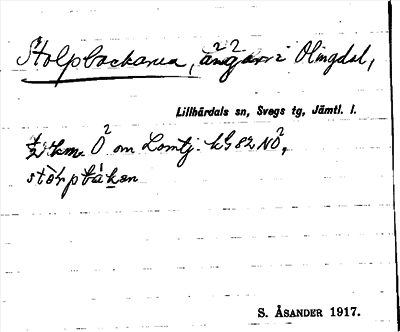 Stolpbackarna, ängar i Olingdal,
Lillhärdals sn, Svegs tg, Jämtl. l.
½ km O om Lomtj. kg 82 NO,
S. ÅSANDER 1917.